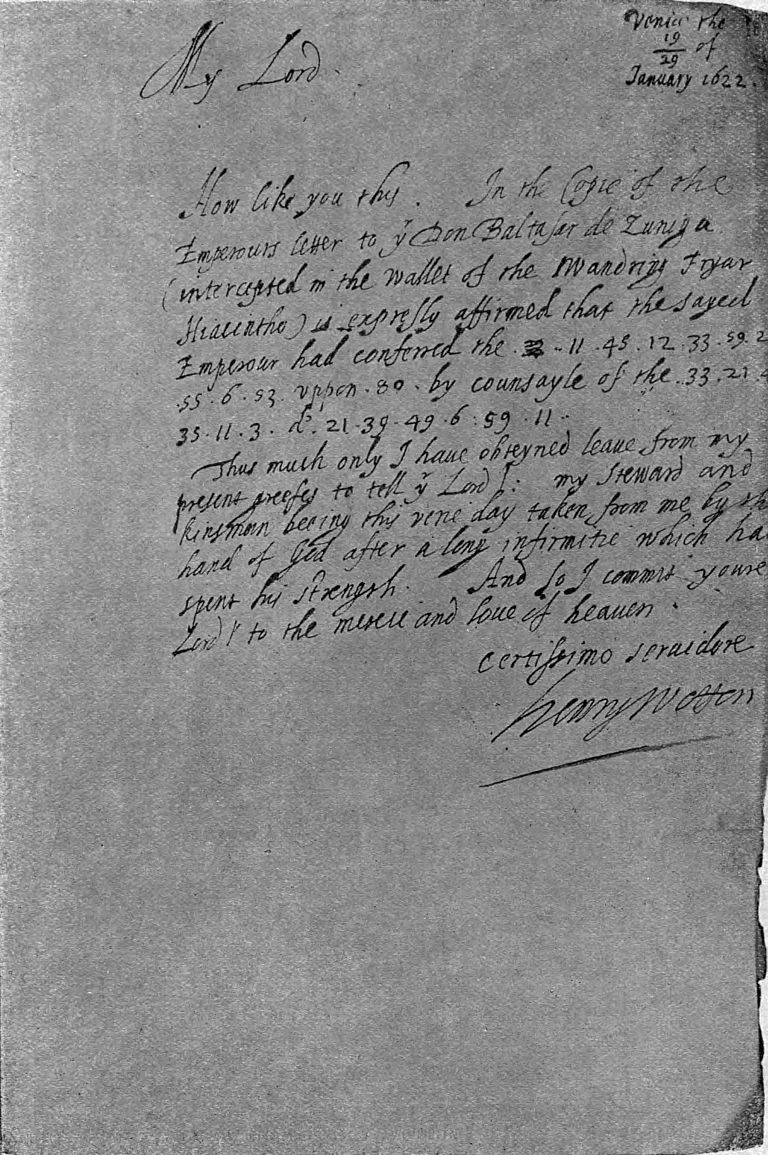 Venice the
19
29 of
January 1622.
My Lord.
How like you this. In the Copie of the
Emperours letter to yͤ Don Baltasar de Zuniga
(intercepted in the wallet of the Wandring Fryar
Hiacintho) is expressly affirmed that the sayed
Emperour had conferred the 11. 45. 12. 33. 59. 2
55. 6. 53. vppon. 80. by counsayle of the. 33. 21.
35. 11. 3. d. 21. 39. 49. 6. 59. 11.
Thus much only I have obteyned leave from my
present greefes to tell yͬ Lordᵖ: my Steward and
kinsman beeing this verie day taken from me by th
hand of God after a long infirmitie which ha
spent his strength. And so I commit youre
Lordᵖ to the mercie and love of heaven.
Certissimo seruidore
Henry Wotton